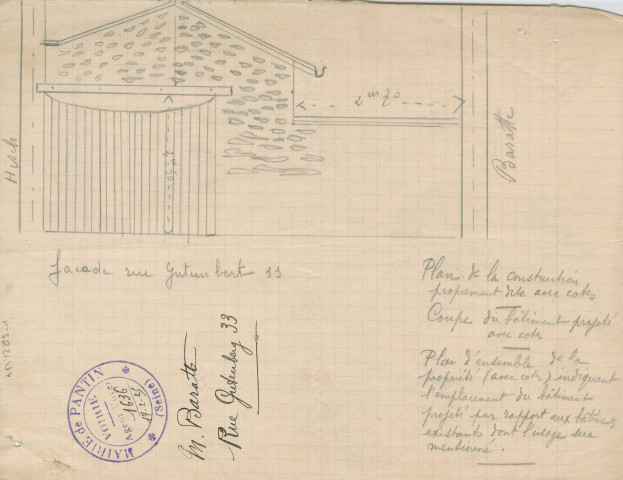 Hirsch
2m70
Baratte
façade rue Gutembert 33
Plan de la construction
proprement dite avec cotes
Coupe du bâtiment projeté
avec cotes
Plan d'ensemble de la
propriété (avec cotes) indiquant
l'emplacement du bâtiment
projeté par rapport aux bâtiments
existants dont l'usage sera
mentionné.
M. Baratte
Rue Gutenberg 33
MAIRIE de PANTIN
(Seine)
VOIRIE
1636